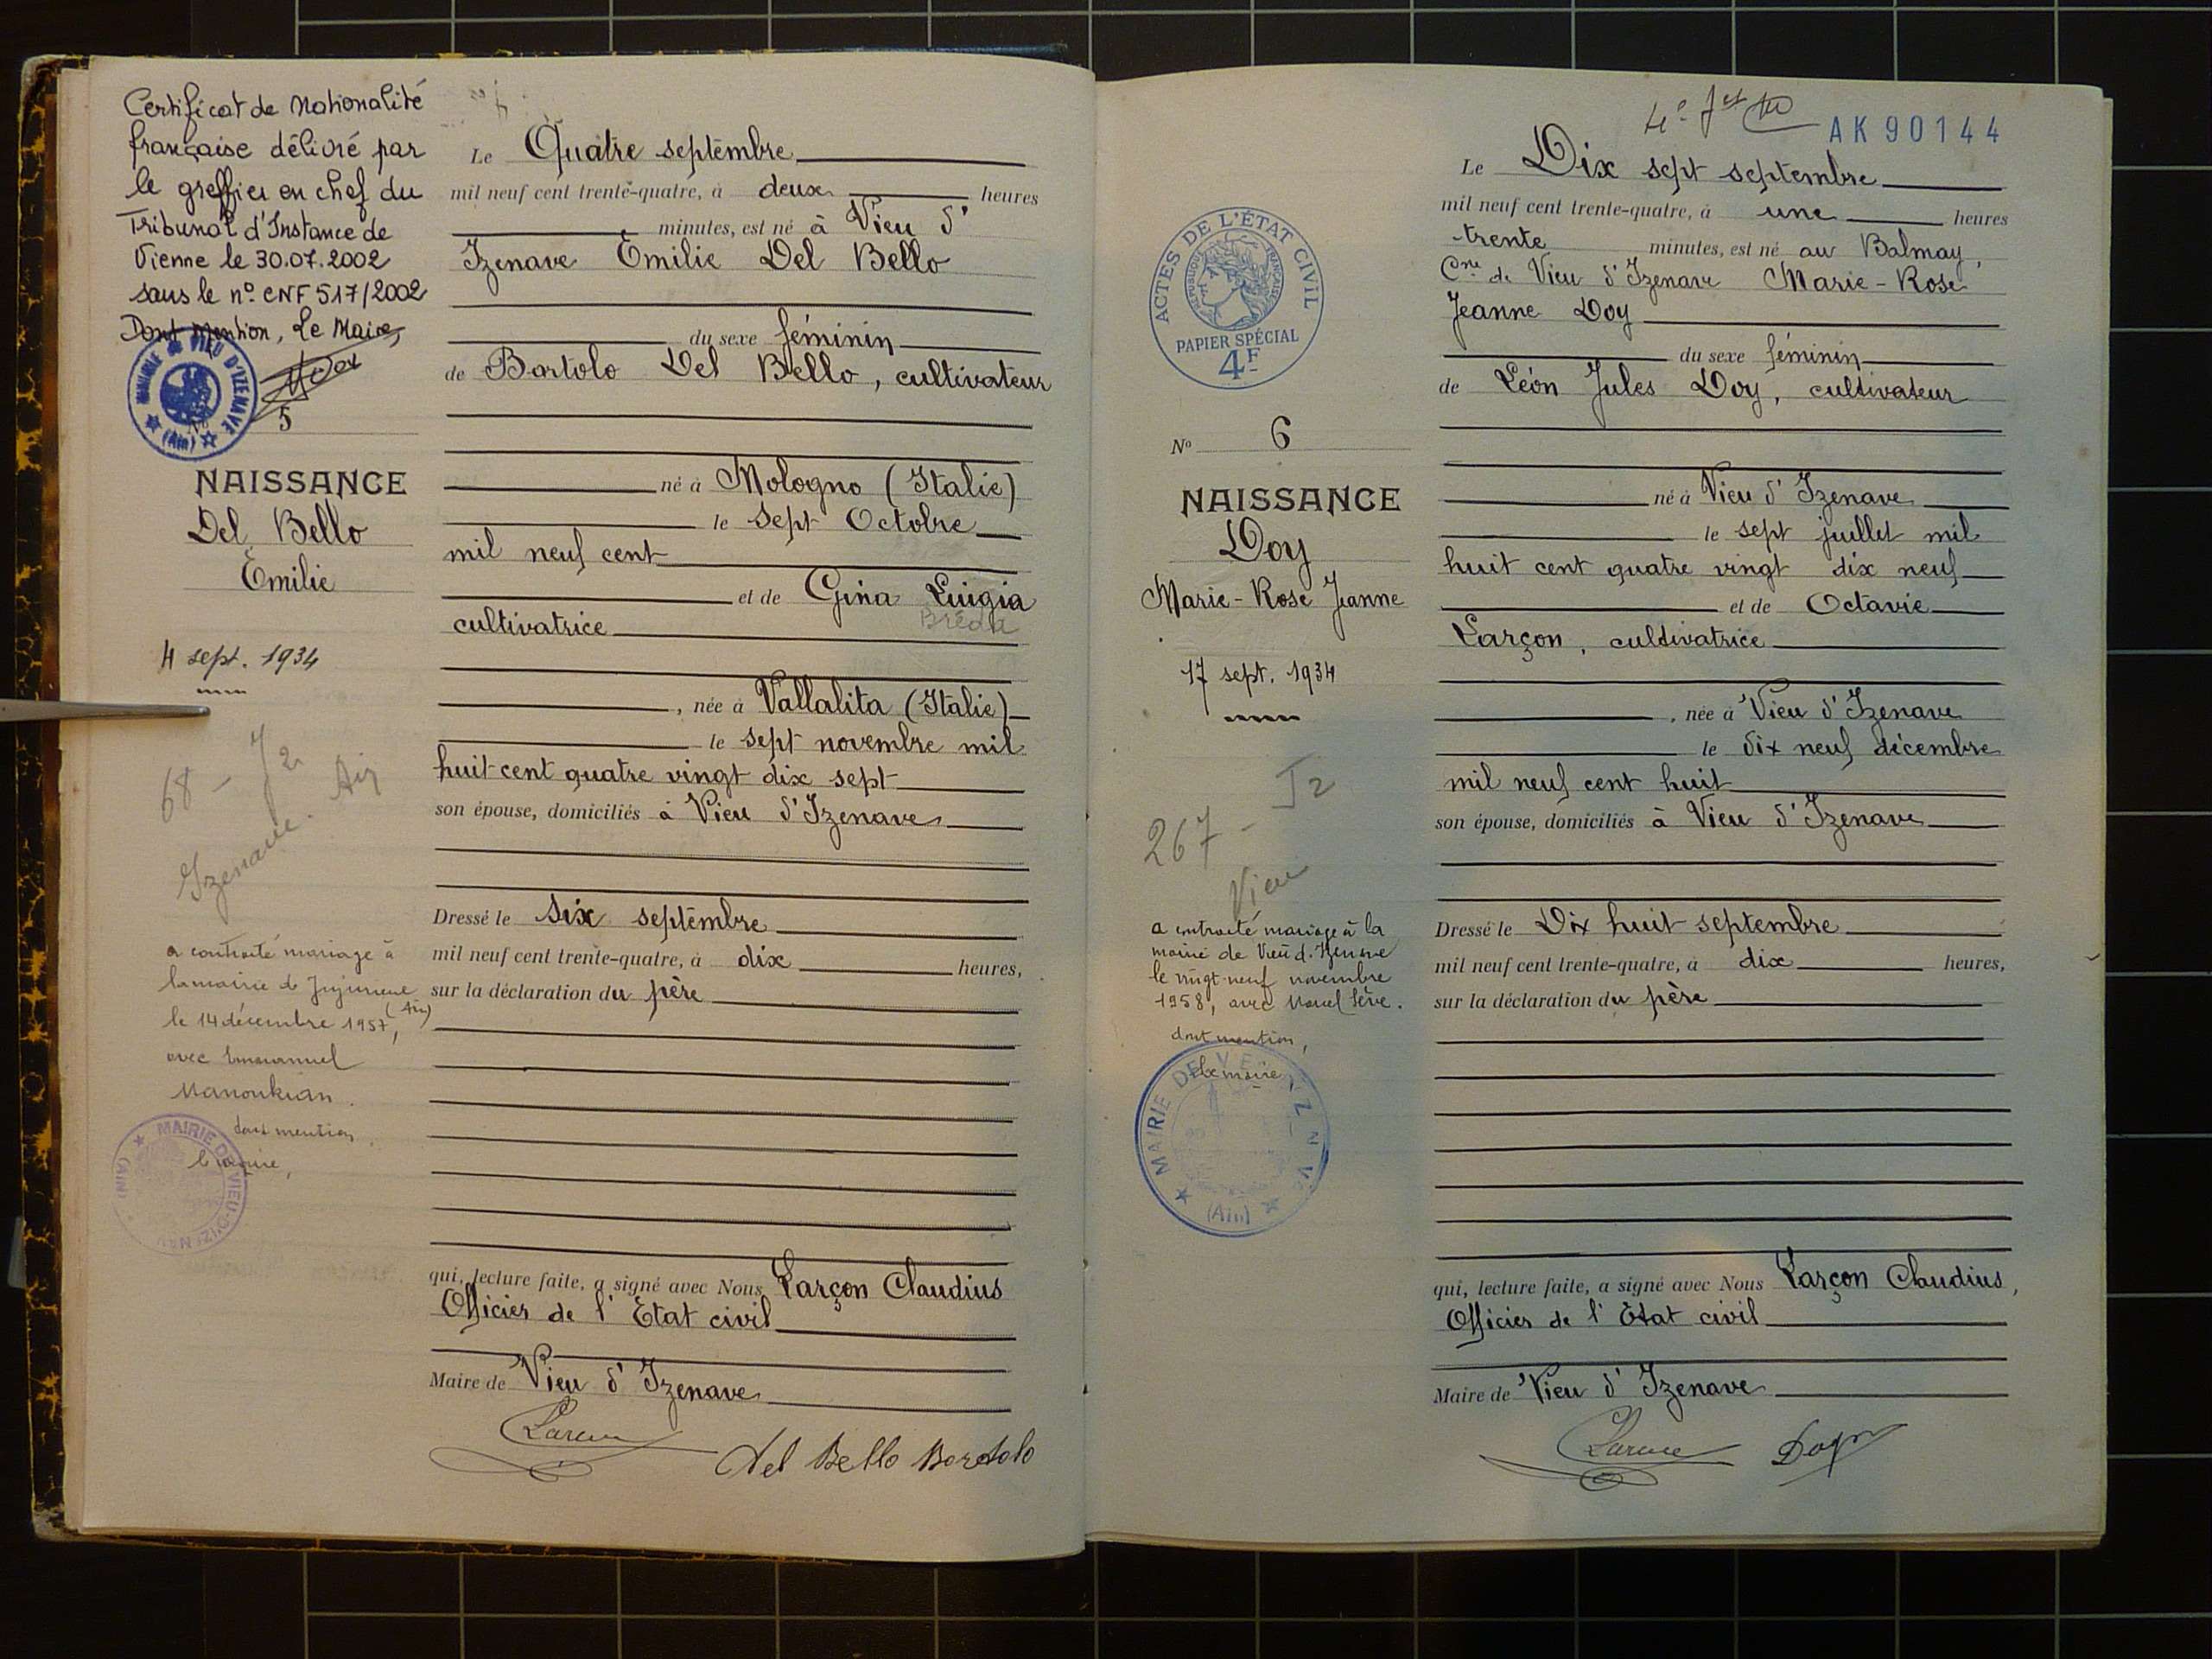 Certificat de Nationalité
française délivré par
le greffier en chef du
Tribunal d'Instance de
Vienne le 30.07.2002
sous le n° CNF 517/2002
Dont Mention, Le Maire,
MAIRIE de VIEU D'IZENAVE
(Ain)
5
NAISSANCE
Del Bello
Emilie
4 sept. 1934
68 - J2
Izenave. Ain
a contracté mariage à
la mairie de Jujurieux
(Ain)
le 14 décembre 1957,
avec Emmanuel
Manoukian.
dont mention,
le maire,
MAIRIE DE VIEU-D'IZENAVE
(AIN)
Le Quatre septembre
mil neuf cent trente-quatre, à deux heures
minutes, est né à Vieu d'
Izenave Emilie Del Bello
du sexe féminin
de Bartolo Del Bello, cultivateur
né à Mologno (Italie)
le sept Octobre
mil neuf cent
et de Gina Luigia
Bréda
cultivatrice
, née à Vallalita (Italie)
le sept novembre mil
huit cent quatre vingt dix sept
son épouse, domiciliés à Vieu d'Izenave
Dressé le six septembre
mil neuf cent trente-quatre, à dix heures,
sur la déclaration du père
qui, lecture faite, a signé avec Nous Larçon Claudius
Officier de l'Etat civil
Maire de Vieu d'Izenave
Larçon Del Bello Bortolo
AK 90144
ACTES DE L'ÉTAT CIVIL
RÉPUBLIQUE FRANÇAISE
PAPIER SPÉCIAL
4F
No 6
NAISSANCE
Doy
Marie-Rose Jeanne
17 sept. 1934
267 - J2
Vieu
a contracté mariage à la
mairie de Vieu d'Izenave
le vingt-neuf novembre
1958, avec Marcel Sève.
dont mention,
Le maire,
MAIRIE DE VIEU D'IZENAVE
(Ain)
Le Dix sept septembre
mil neuf cent trente-quatre, à une heures
trente minutes, est né au Balmay,
Cne de Vieu d'Izenave Marie-Rose
Jeanne Doy
du sexe féminin
de Léon Jules Doy, cultivateur
né à Vieu d'Izenave
le sept juillet mil
huit cent quatre vingt dix neuf
et de Octavie
Larçon, cultivatrice
, née à Vieu d'Izenave
le dix neuf décembre
mil neuf cent huit
son épouse, domiciliés à Vieu d'Izenave
Dressé le Dix huit septembre
mil neuf cent trente-quatre, à dix heures,
sur la déclaration du père
qui, lecture faite, a signé avec Nous Larçon Claudius,
Officier de l'Etat civil
Maire de Vieu d'Izenave
Larçon Doy